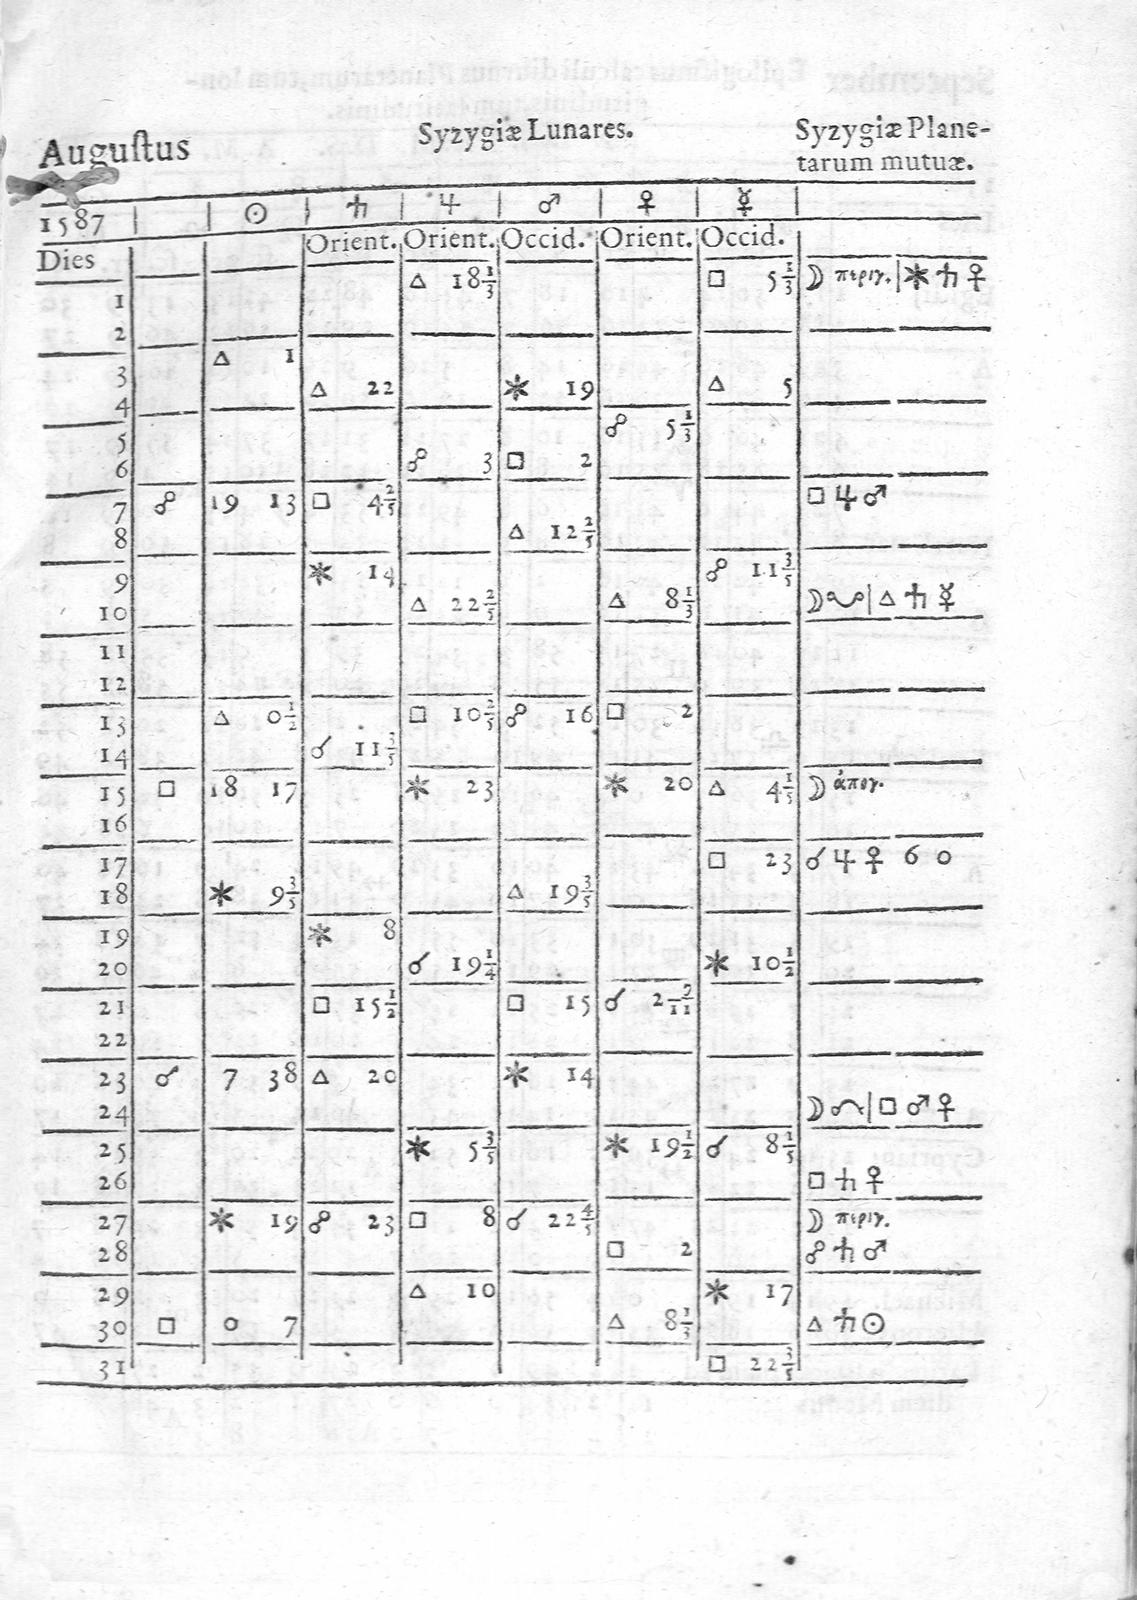 Auguſtus Syzygiæ Lunares. Syzygiæ Plane-
tarum mutuæ.
1587 ☉ ♄ ♃ ♂ ♀ ☿
Dies Orient. Orient. Occid. Orient. Occid.
1 △ 18 1/3 □ 5 1/3 ☽ περιγ. | ⚹ ♄ ♀
2
3 △ 1
4 △ 22 ⚹ 19 △ 5
5 ☍ 5 1/3
6 ☍ 3 □ 2
7 ☍ 19 13 □ 4 2/5 □ ♃ ♂
8 △ 12 2/5
9 ⚹ 14 ☍ 11 3/5
10 △ 22 2/5 △ 8 1/3 ☽ ☋ | △ ♄ ☿
11
12
13 △ 0 1/2 □ 10 2/5 ☍ 16 □ 2
14 ☌ 11 3/5
15 □ 18 17 ⚹ 23 ⚹ 20 △ 4 1/5 ☽ ἀπογ.
16
17 □ 23 ☌ ♃ ♀ 6 0
18 ⚹ 9 3/5 △ 19 3/5
19 ⚹ 8
20 ☌ 19 1/4 ⚹ 10 1/2
21 □ 15 1/2 □ 15 ☌ 2
22
23 ☌ 7 38 △ 20 ⚹ 14
24 ☽ ☊ | □ ♂ ♀
25 ⚹ 5 3/5 ⚹ 19 1/2 ☌ 8 1/5
26 □ ♄ ♀
27 ⚹ 19 ☍ 23 □ 8 ☌ 22 4/5 ☽ περιγ.
28 □ 2 ☍ ♄ ♂
29 △ 10 ⚹ 17
30 □ 0 7 △ 8 1/3 △ ♄ ☉
31 □ 22 3/5